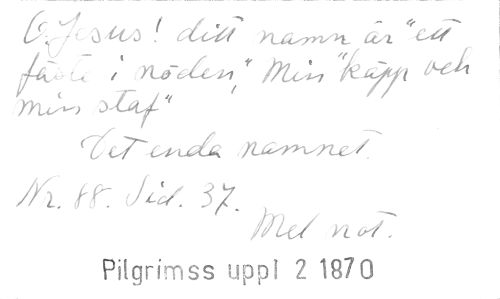 O, Jesus! ditt namn är "ett
fäste i nöden," Min "käpp och
min staf"
Det enda namnet.
Nr. 88. Sid. 37.
Mel not.
Pilgrimss uppl 2 1870